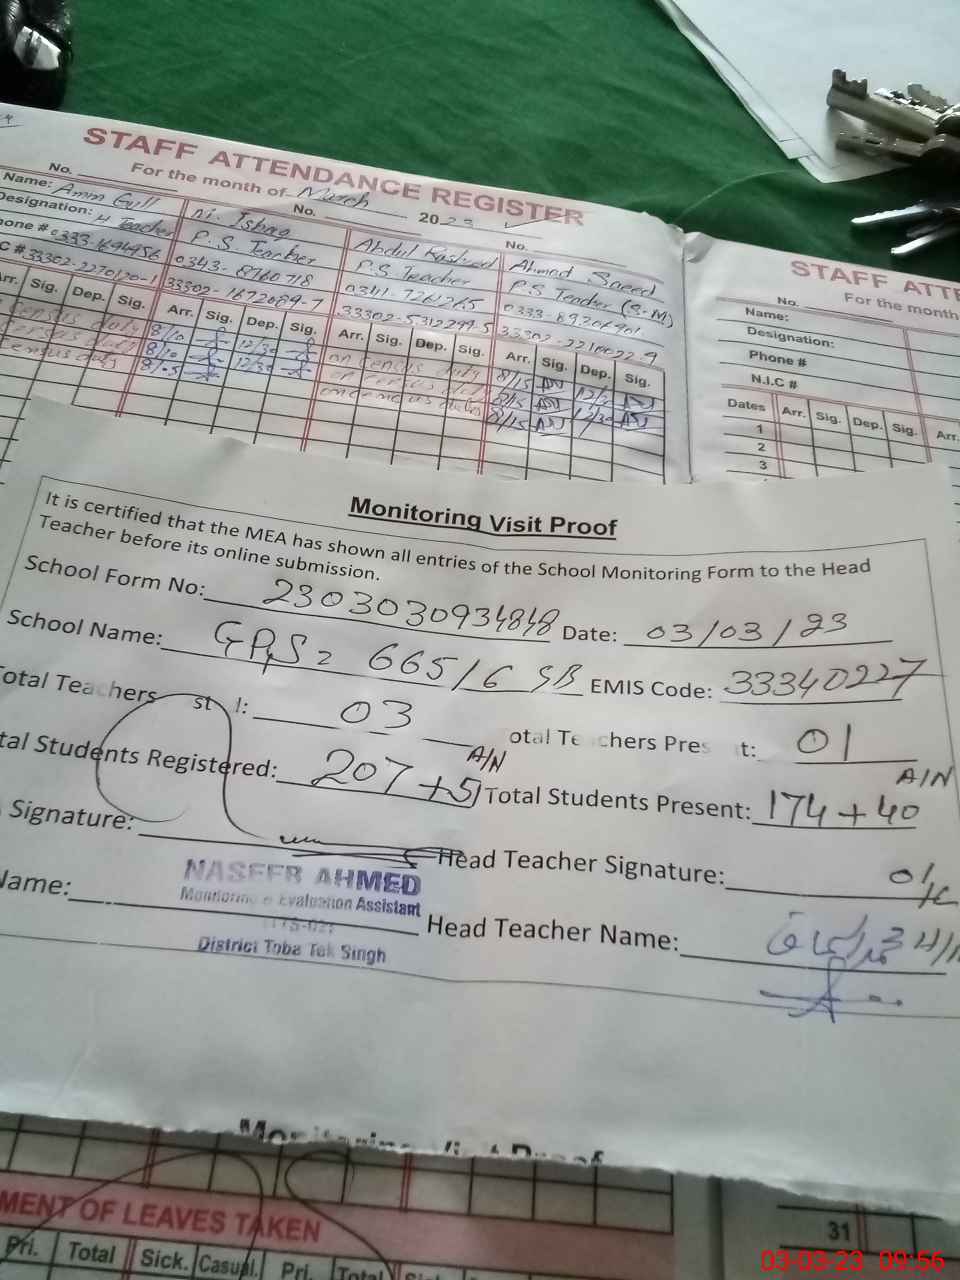 STAFF ATTENDANCE REGISTER
For the month of March 2023
No. No. No.
Name: Amm Gull
Designation: H Teacher
C # 33302-2270120-1
Ishaq
P.S. Teacher
0343-8760718
33302-1672089-7
Abdul Rasheed
P.S. Teacher
0341-7261265
33302-5312299-5
Ahmad Saeed
P.S Teacher (S.M)
0333-8920490
Arr. Sig. Dep. Sig. Arr. Sig. Dep. Sig. Arr. Sig. Dep. Sig. Arr. Sig. Dep. Sig.
census duty 8/10 12/30 on census duty 8/15 12/30
census duty 8/10 12/30 on census duty 8/15
census duty 8/05 12/30 on census duty 8/15 12/30
STAFF ATTE
No. For the month
Name:
Designation:
Phone #
N.I.C #
Dates Arr. Sig. Dep. Sig. Arr.
1
2
3
Monitoring Visit Proof
It is certified that the MEA has shown all entries of the School Monitoring Form to the Head
Teacher before its online submission.
School Form No: 2303030934848 Date: 03/03/23
School Name: GPS 665/6 GB EMIS Code: 33340227
otal Teachers st l: 03 otal Te chers Pres t: 01
tal Students Registered: 207+5 A/N Total Students Present: 174+40 A/N
Signature: Head Teacher Signature: O/C
NASEER AHMED
Monitoring & Evaluation Assistant
District Toba Tek Singh
Name: Head Teacher Name: محمد اسحاق
Monitoring Visit Proof
MENT OF LEAVES TAKEN
Pri. Total Sick. Casual. Pri. Total
31
03-03-23 09:56